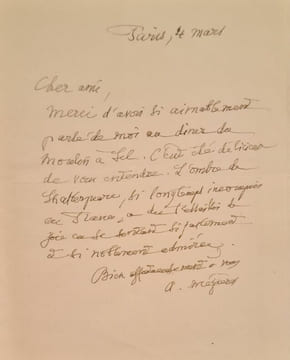 Paris, 4 mars
Cher ami,
Merci d'avoir si aimablement
parlé de moi au dîner du
Moulin à Sel. C'eut été délicieux
de vous entendre. L'ombre de
Shakespeare, si longtemps
en France, a dû tressaillir de
joie en se sentant si justement
et si noblement admirée.
Bien à vous